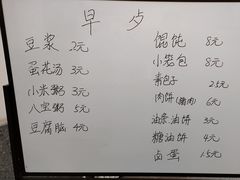 早歺
豆浆 2元
蛋花汤 3元
小米粥 3元
八宝粥 5元
豆腐脑 4元
馄饨 8元
小笼包 8元
素包子 2.5元
肉饼(猪肉) 6元
油条油饼 3元
糖油饼 4元
卤蛋 1.5元